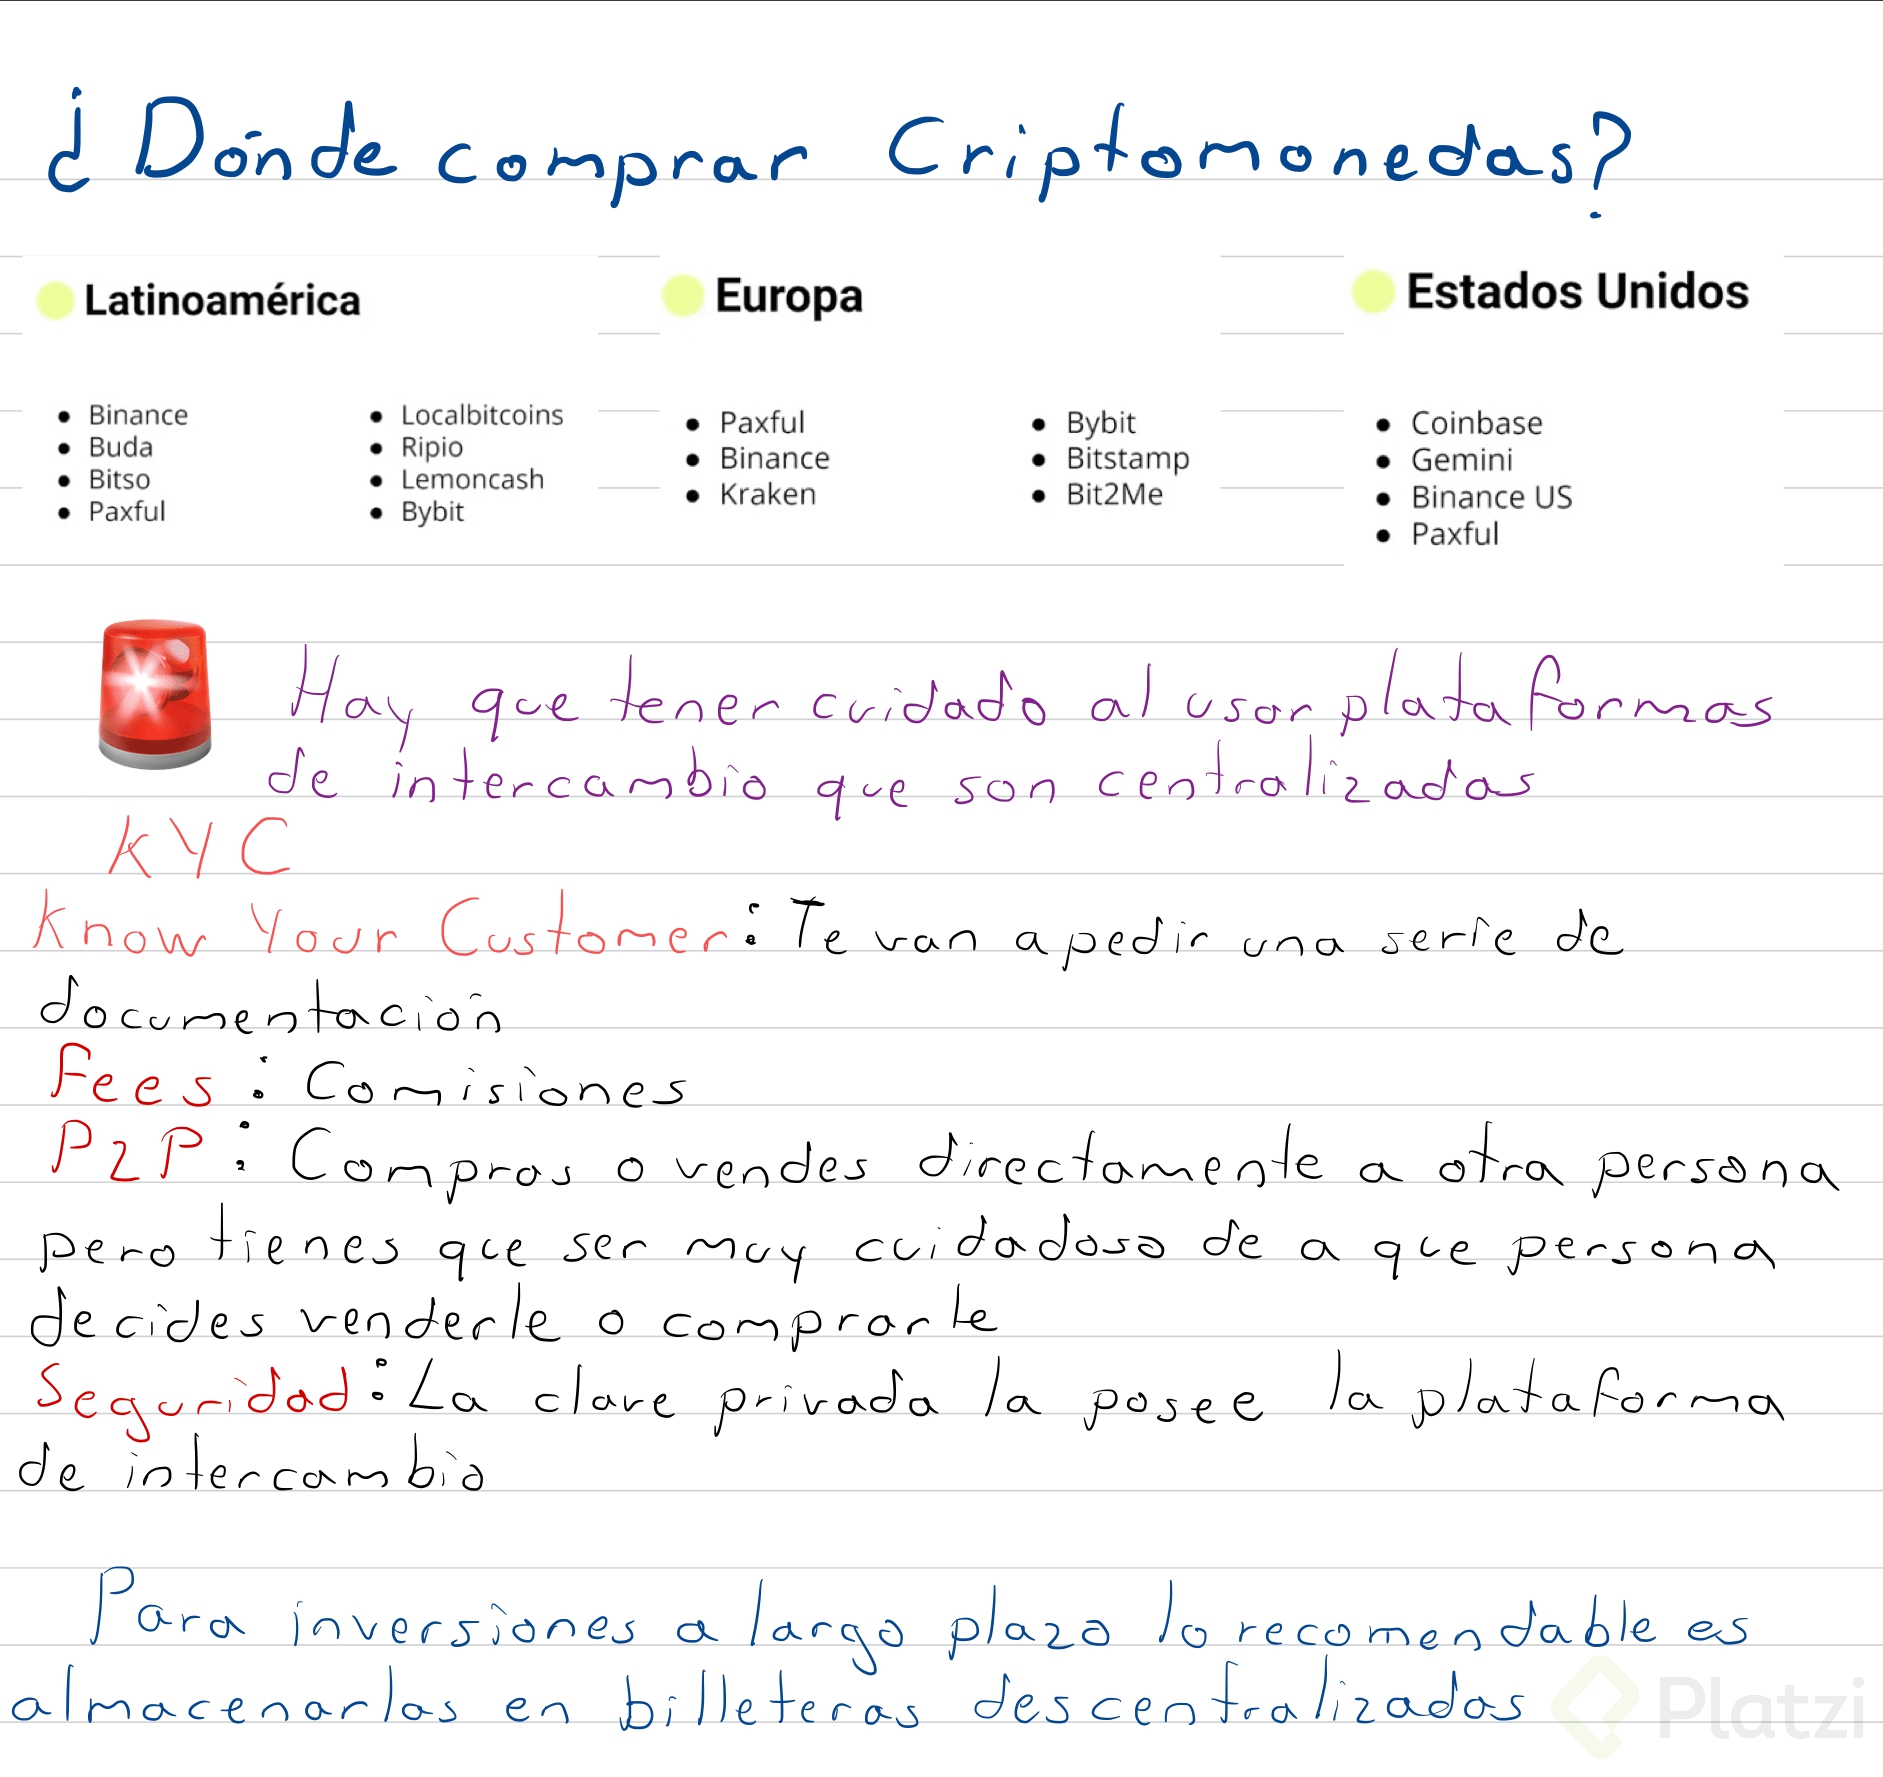 ¿Dónde comprar Criptomonedas?
Latinoamérica
Binance
Buda
Bitso
Paxful
Localbitcoins
Ripio
Lemoncash
Bybit
Europa
Paxful
Binance
Kraken
Bybit
Bitstamp
Bit2Me
Estados Unidos
Coinbase
Gemini
Binance US
Paxful
Hay que tener cuidado al usar plataformas
de intercambio que son centralizadas
KYC
Know Your Customer: Te van a pedir una serie de
documentación
Fees: Comisiones
P2P: Compras o vendes directamente a otra persona
pero tienes que ser muy cuidadoso de a que persona
decides venderle o comprarle
Seguridad: La clave privada la posee la plataforma
de intercambio
Para inversiones a largo plazo lo recomendable es
almacenarlas en billeteras descentralizadas
Platzi